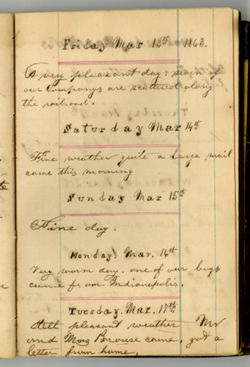 Friday Mar 13th 1863.
A very pleasant day; seven of
our companys are scattered along
the railroad.
Saturday Mar 14th
Fine weather quite a large mail
came this morning
Sunday Mar 15th
Fine day.
Monday, Mar. 16th
Very warm day. one of our boys
came from Indianapolis.
Tuesday. Mar. 17th
Still pleasant weather Mr
and Mrs came, got a
letter from home.